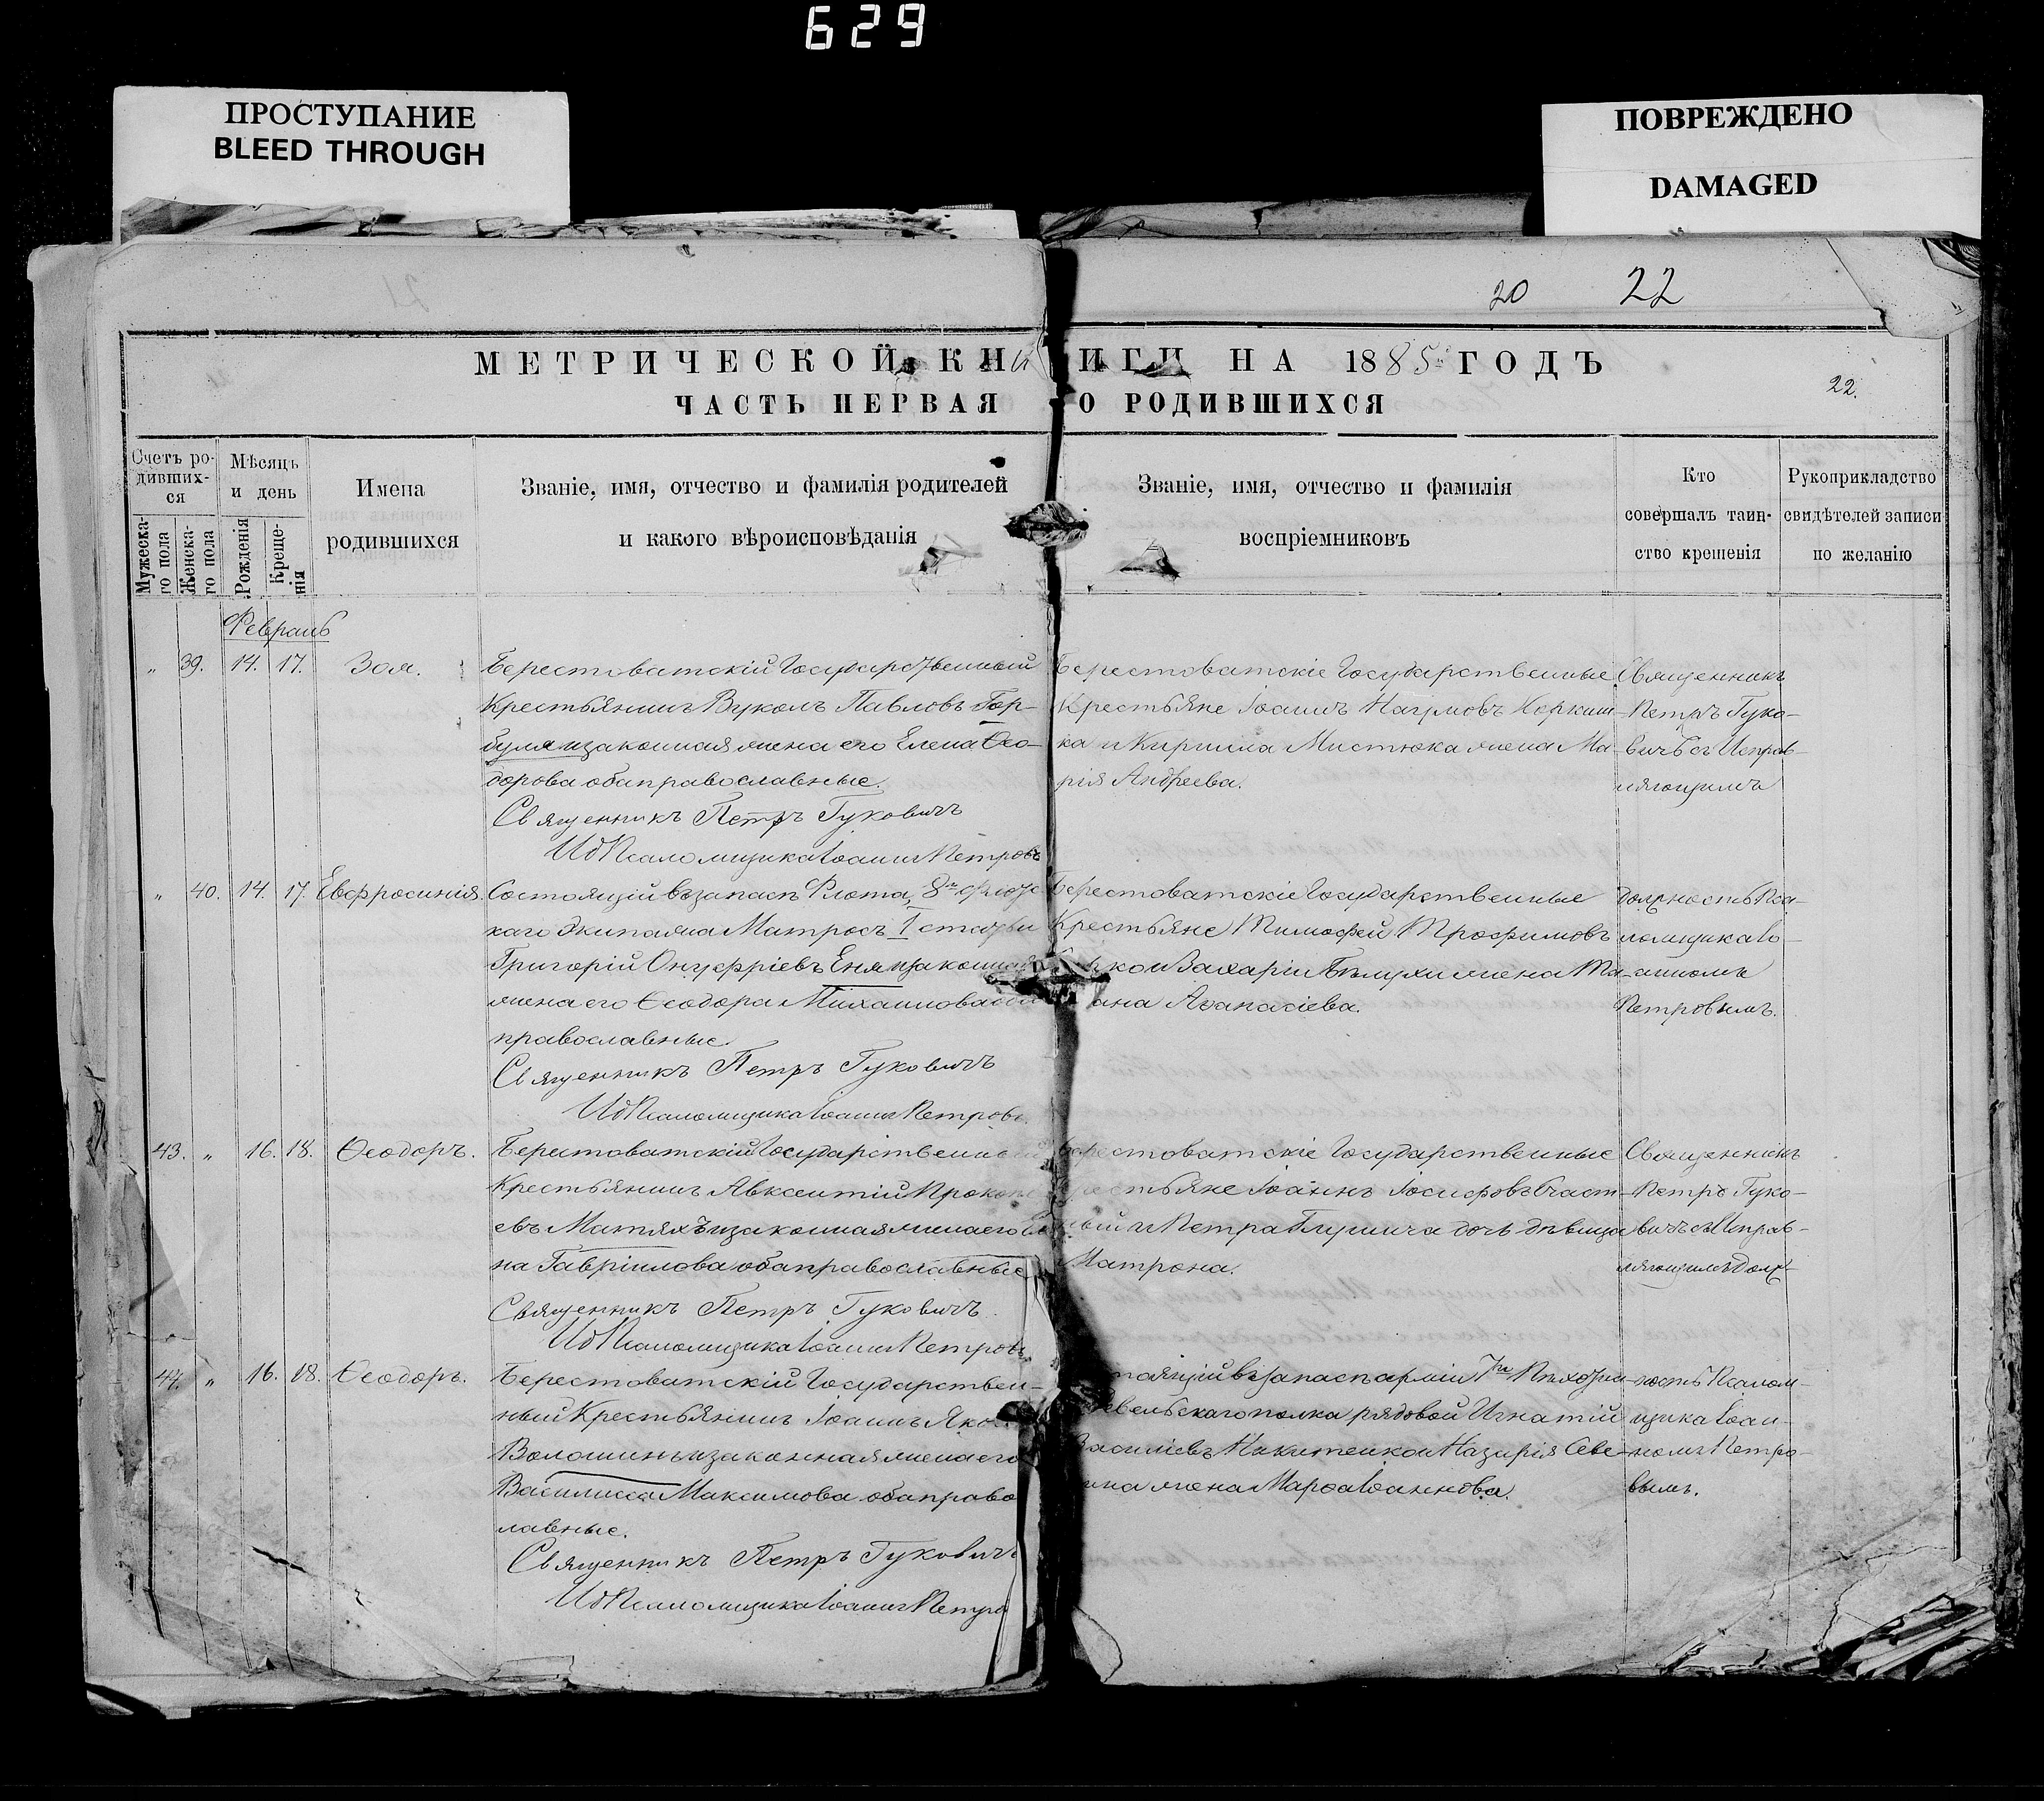 629
ПРОСТУПАНИЕ
BLEED THROUGH
ПОВРЕЖДЕНО
DAMAGED
20 22
МЕТРИЧЕСКОЙ КНИГИ НА 1885 ГОДЪ
22.
ЧАСТЬ ПЕРВАЯ О РОДИВШИХСЯ
Счетъ ро-
дивших-
ся
Мужеска-
го пола
Женска-
го пола
Мѣсяцъ
и день
Рожденія
Креще-
нія
Имена
родившихся
Званіе, имя, отчество и фамилія родителей
и какого вѣроисповѣданія
Званіе, имя, отчество и фамилія
воспріемниковъ
Кто
совершалъ таин-
ство крещенія
Рукоприкладство
свидѣтелей записи
по желанію
Февраль
" 39. 14. 17. Зоя.
Берестоватскій Государственный
Крестьянинъ Вуколъ Павловъ Гор-
буля и законная жена его Елена Ѳео-
дорова оба православные.
Священникъ Петръ Гуковичъ
Ид Псаломщика Іоаннъ Петровъ
Берестоватскіе Государственные
Крестьяне Іоаннъ Наумовъ
ка и Кирилла Мистюка жена Ма-
рія Андреева.
Священникъ
Петръ Гуко-
вичъ съ Исправ-
ляющимъ
" 40. 14. 17. Евфросинія.
Состоящій въ запасѣ Флота, 8го флотс
каго Экипажа Матросъ 1 статьи
Григорій Онуфріевъ Еня и законная
жена его Ѳеодора Михаилова оба
православные.
Священникъ Петръ Гуковичъ
Ид Псаломщика Іоаннъ Петровъ.
Берестоватскіе Государственные
Крестьяне Тимофей Трофимовъ
ко и Захарія Бѣлухи жена Та-
ана Аѳанасіева.
должность Пса-
ломщика Іо-
анномъ
Петровымъ.
43. " 16. 18. Ѳеодоръ.
Берестоватскій Государственный
Крестьянинъ Авксентій Прокопі
евъ Матяхъ и законная жена его
на Гавріилова оба православные
Священникъ Петръ Гуковичъ.
Ид Псаломщика Іоаннъ Петровъ
Берестоватскіе Государственные
Крестьяне Іоаннъ Іосифовъ Счаст-
ный и Петра Глушича дочь дѣвица
Матрона.
Священникъ
Петръ Гуко-
вичъ съ Исправ-
ляющимъ долж-
44. " 16. 18. Ѳеодоръ.
Берестоватскій Государствен-
ный Крестьянинъ Іоаннъ Яко
Волошинъ и законная жена его
Василисса Максимова оба право
лавные.
Священникъ Петръ Гуковичъ
Ид Псаломщика Іоаннъ Петро
тоящій въ запасѣ арміи 7го Пѣхотн
Ревельскаго полка рядовой Игнатій
Василіевъ Никитенко и Назарія Севе-
ина жена Марѳа Іоаннова.
ность Псалом-
щика Іоан-
номъ Петро-
вымъ.